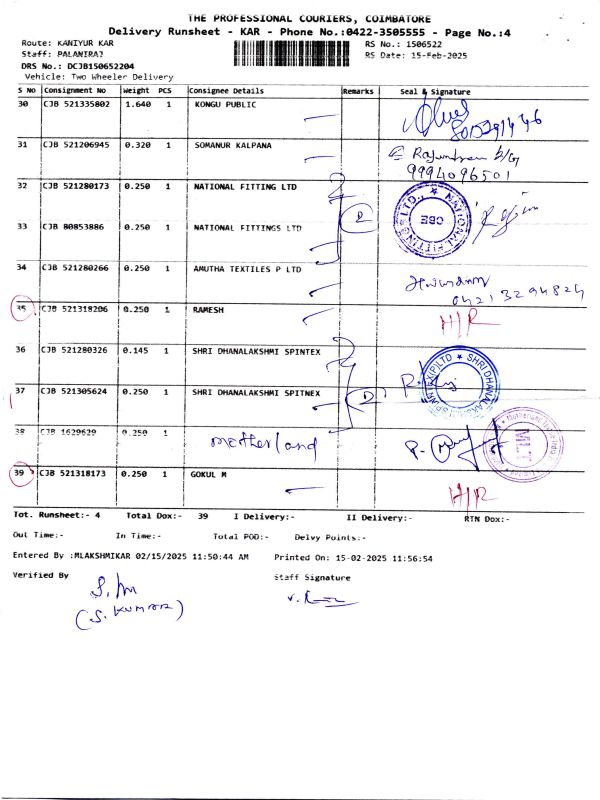 THE PROFESSIONAL COURIERS, COIMBATORE
Delivery Runsheet - KAR - Phone No.:0422-3505555 - Page No.:4
Route: KANIYUR KAR
RS No.: 1506522
Staff: PALANIRAJ
RS Date: 15-Feb-2025
DRS No.: DCJB150652204
Vehicle: Two Wheeler Delivery
S No Consignment No Weight PCS Consignee Details Remarks Seal & Signature
30 CJB 521335802 1.640 1 KONGU PUBLIC
31 CJB 521206945 0.320 1 SOMANUR KALPANA
9994096501
32 CJB 521280173 0.250 1 NATIONAL FITTING LTD
NATIONAL FITTINGS LTD. CBE
33 CJB 80853886 0.250 1 NATIONAL FITTINGS LTD
34 CJB 521280266 0.250 1 AMUTHA TEXTILES P LTD
0421 3294824
35 CJB 521318206 0.250 1 RAMESH H/R
36 CJB 521280326 0.145 1 SHRI DHANALAKSHMI SPINTEX
37 CJB 521305624 0.250 1 SHRI DHANALAKSHMI SPITNEX
38 CJB 1629629 0.250 1 motherland
MLT
39 CJB 521318173 0.250 1 GOKUL M H/R
Tot. Runsheet:- 4 Total Dox:- 39 I Delivery:- II Delivery:- RTN Dox:-
Out Time:- In Time:- Total POD:- Delvy Points:-
Entered By :MLAKSHMIKAR 02/15/2025 11:50:44 AM Printed On: 15-02-2025 11:56:54
Verified By Staff Signature
(S. KUMAR)